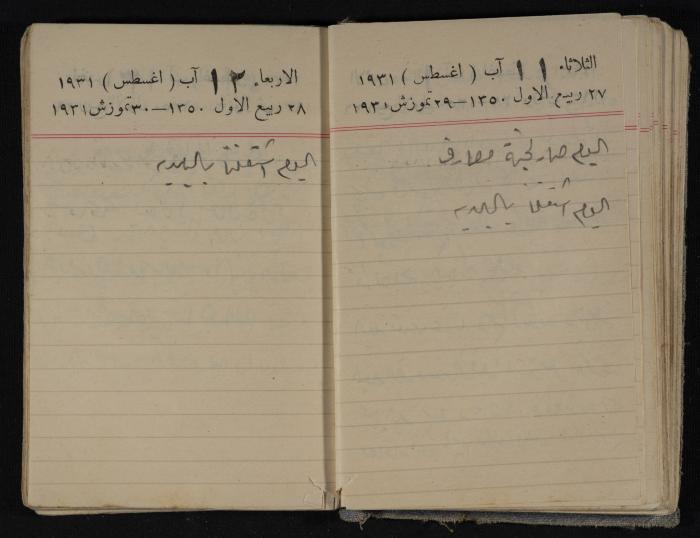 الثلاثاء ١١ آب ( اغسطس ) ١٩٣١
٢٧ ربيع الاول ١٣٥٠—٢٩ تموز ش ١٩٣١
اليوم صار لجنة مصارف
اليوم اشتغلنا بالبلديه
الاربعاء ١٢ آب ( اغسطس ) ١٩٣١
٢٨ ربيع الاول ١٣٥٠—٣٠ تموز ش ١٩٣١
اليوم اشتغلنا بالبلديه